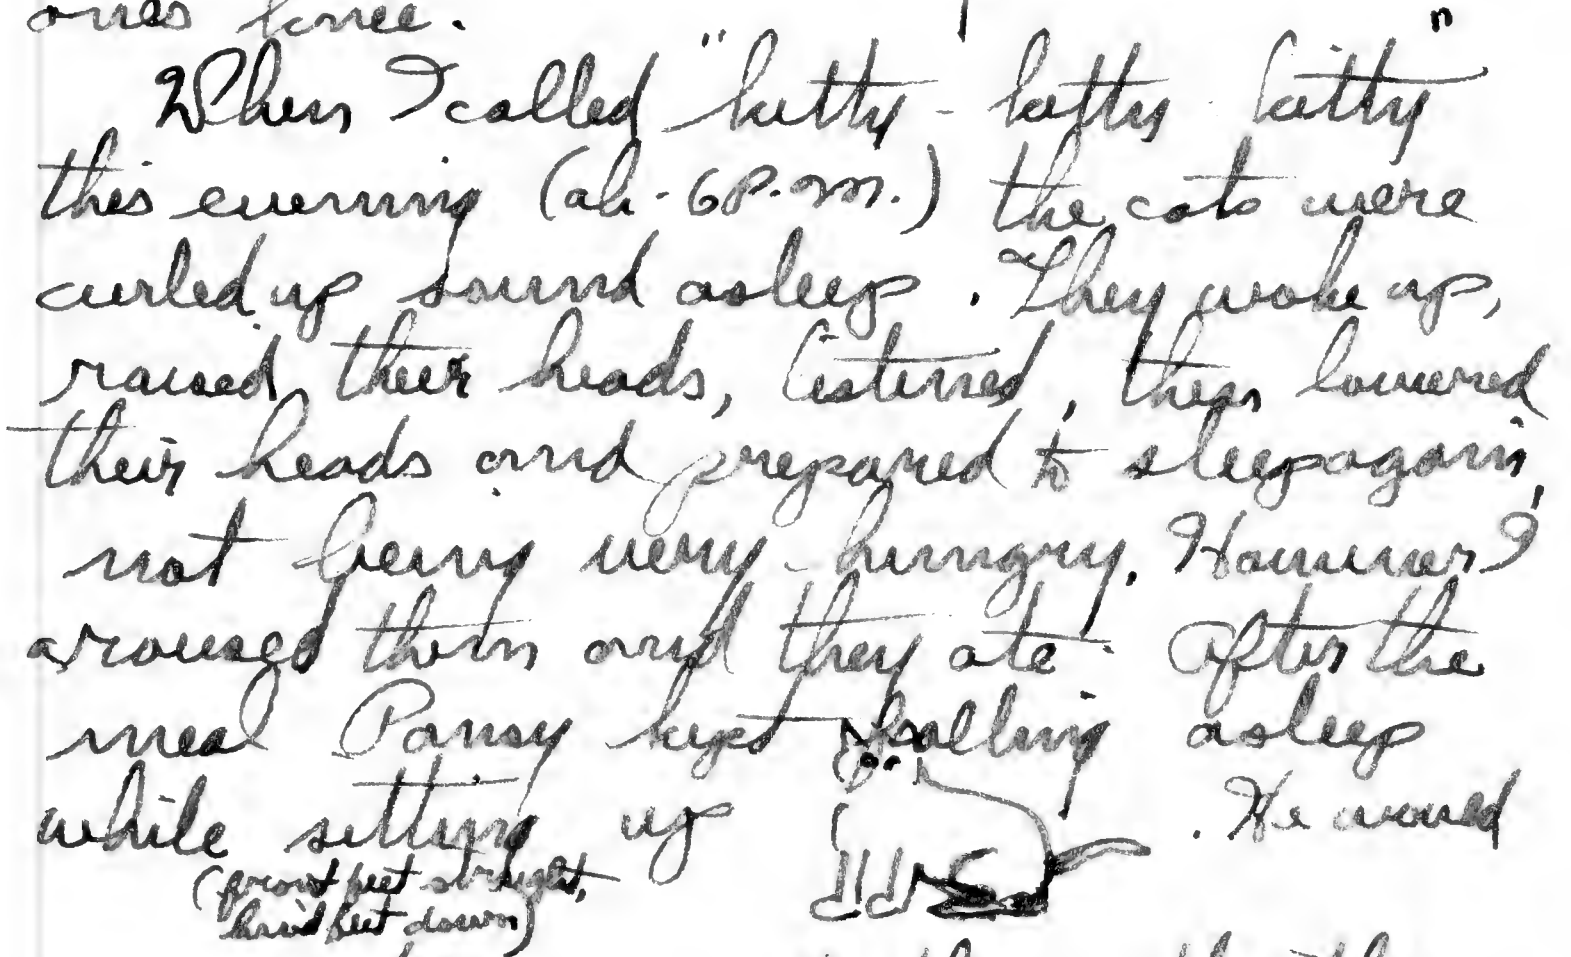 ones knee.
When I called "kitty - kitty kitty"
this evening (ab - 6 P.M.) the cats were
curled up sound asleep. They woke up,
raised their heads, listened, then lowered
their heads and prepared to sleep again,
not being very hungry. However I
aroused them and they ate. After the
meal Pansy kept falling asleep
while sitting up . He would
(front feet straight,
hind feet down)